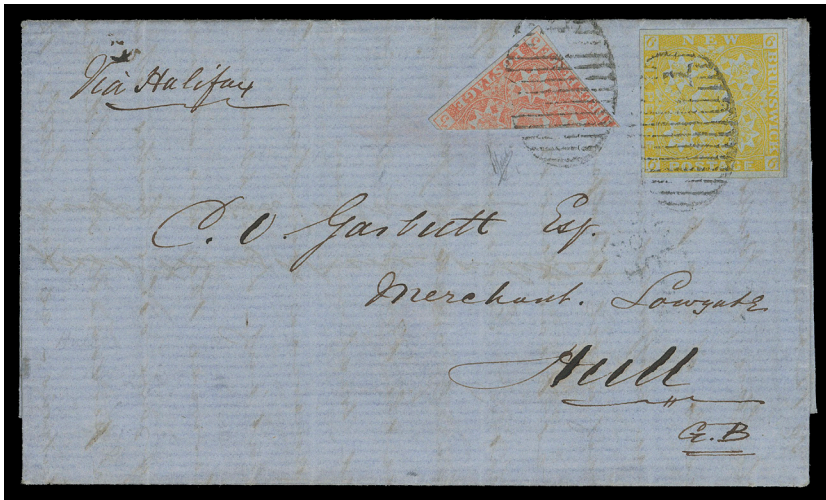 Via Halifax
NEW
BRUNSWICK
POSTAGE
C. O. Garbutt Esq.
Merchant. Lowgate
Hull
G.B